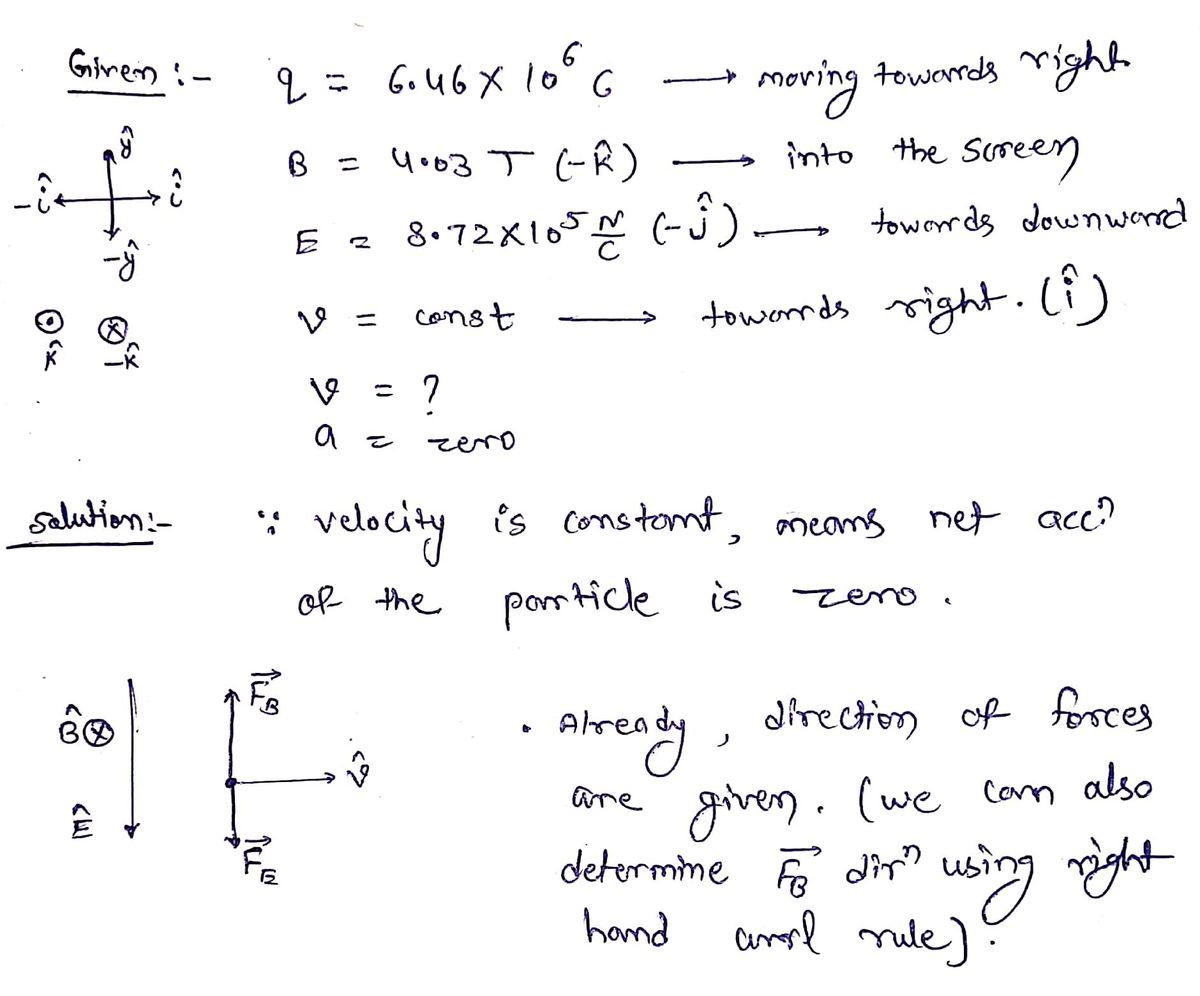 Given :- q = 6.46 X 10⁶ C → moving towards right
ŷ
-î î
-ŷ
B = 4.03 T (-k̂) → into the screen
E = 8.72X10⁵ N/C (-ĵ) → towards downward
v = const → towards right. (î)
⊙ ⊗
k̂ -k̂
v = ?
a = zero
solution:- ∵ velocity is constant, means net accⁿ
of the particle is zero.
B̂ ⊗
Ê
F⃗_B
v̂
F⃗_E
• Already, direction of forces
are given. (we can also
determine F⃗_B dirⁿ using right
hand curl rule).